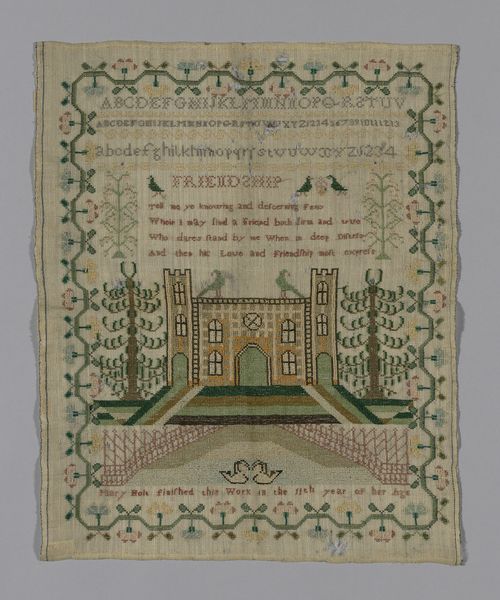 ABCDEFGHIJKLMNOPQRSTUV
ABCDEFGHIJKLMNOPQRSTUVWXYZ12345678910111213
abcdefghiklmnopqrsstuvwxyz1234
FRIENDSHIP
Tell me ye knowing and descerning Few
Where I may find a Friend both firm and true
Who dares stand by me When in deep Distress
And then his Love and Friendship most express
Mary Holt finished this Work in the 11th year of her Age